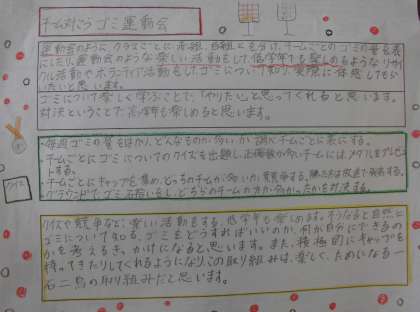 チーム対こうゴミ運動会
運動会のように、クラスごとに赤組、白組にも分け、チームごとのゴミの量を表
にしたり、運動会のような楽しい活動をして、低学年でも楽しめるようなリサイ
クル活動やボランティア活動をして、ゴミについて知り、実際に体感してもら
いたいと思います。
ゴミについて楽しく学ぶことで、「やりたい」と思ってくれると思います。
対決ということで、高学年も楽しめると思います。
・毎週ゴミの量をはかり、どんなものが多いか調べチームごとに表にする。
・チームごとにゴミについてのクイズを出題し、正解数が多いチームにはメダルをプレゼン
トする。
・チームごとにキャップを集め、どっちのチームが多いか競争する。勝った方は放送で発表する。
・グラウンドでゴミ拾いをし、どちらのチームの方が多かったかを対決する。
クイズ
クイズや競争など、楽しい活動をする。低学年も楽しめます。そうなると自然に
ゴミについて知る、ゴミをどうすればいいのか、何か自分にできるの
かを考えるきっかけになると思います。また、積極的にキャップを
持ってきたりしてくれるようになり、この取り組みは、楽しく、ためになる一
石二鳥の取り組みだと思います。